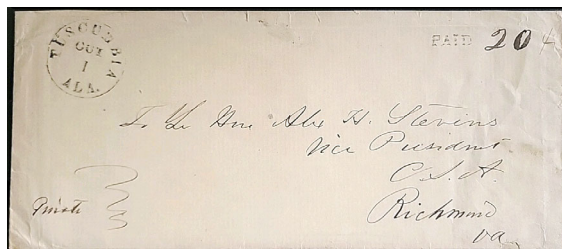 TUSCUMBIA
OCT
1
ALA.
PAID 20
To Hon Alex H. Stevens
Vice President
C.S.A.
Richmond
Va
Private